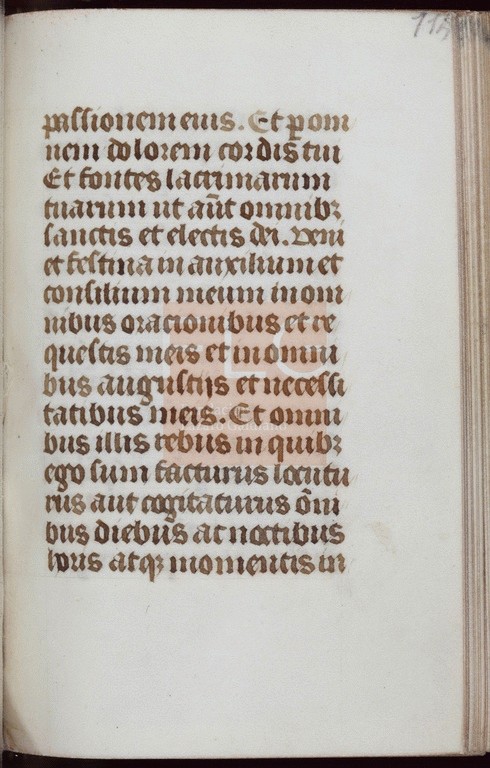 114
passionem eius. Et ꝑ om
nem dolorem cordis tui
Et fontes lacrimarum
tuarum ut cū omnibꝫ
sanctis et electis dei. veni
et festina in auxilium et
consilium meum in om
nibus oracionibus et re
questis meis et in omni
bus augustijs et necessi
tatibus meis. Et omni
bus illis rebus in quibꝫ
ego sum facturus locutu
rus aut cogitaturus ōni
bus diebus ac noctibus
horis atqꝫ momentis in